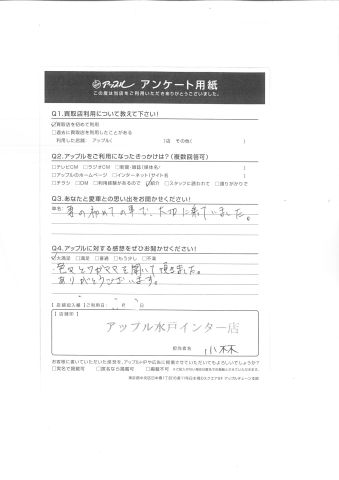 アップル アンケート用紙
この度は当店をご利用いただきありがとうございました。
Q1.買取店利用について教えて下さい!
☑買取店を初めて利用
□過去に買取店を利用したことがある
利用した店舗: アップル( )店 その他( )
Q2.アップルをご利用になったきっかけは?(複数回答可)
□テレビCM □ラジオCM □新聞・雑誌(媒体名: )
□アップルのホームページ □インターネット(サイト名 )
□チラシ □DM □利用経験があるので ☑紹介 □スタッフに誘われて □通りがかりで
Q3.あなたと愛車との思い出をお聞かせください!
車名:
初めての車で、大切に乗っていました。
Q4.アップルに対する感想をぜひお聞かせください!
☑大満足 □満足 □普通 □もう少し □不満
色々とワガママを聞いて頂きました。
ありがとうございます。
【店舗記入欄】【ご利用日: 月 日
【店舗印】
アップル水戸インター店
担当者名 小林
お客様に書いていただいた感想を、アップルHPや広告に掲載させていただいてもよろしいでしょうか?
□実名で掲載可 □匿名なら掲載可 □掲載不可